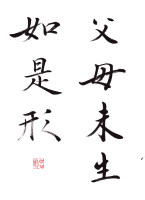 父母未生
如是形